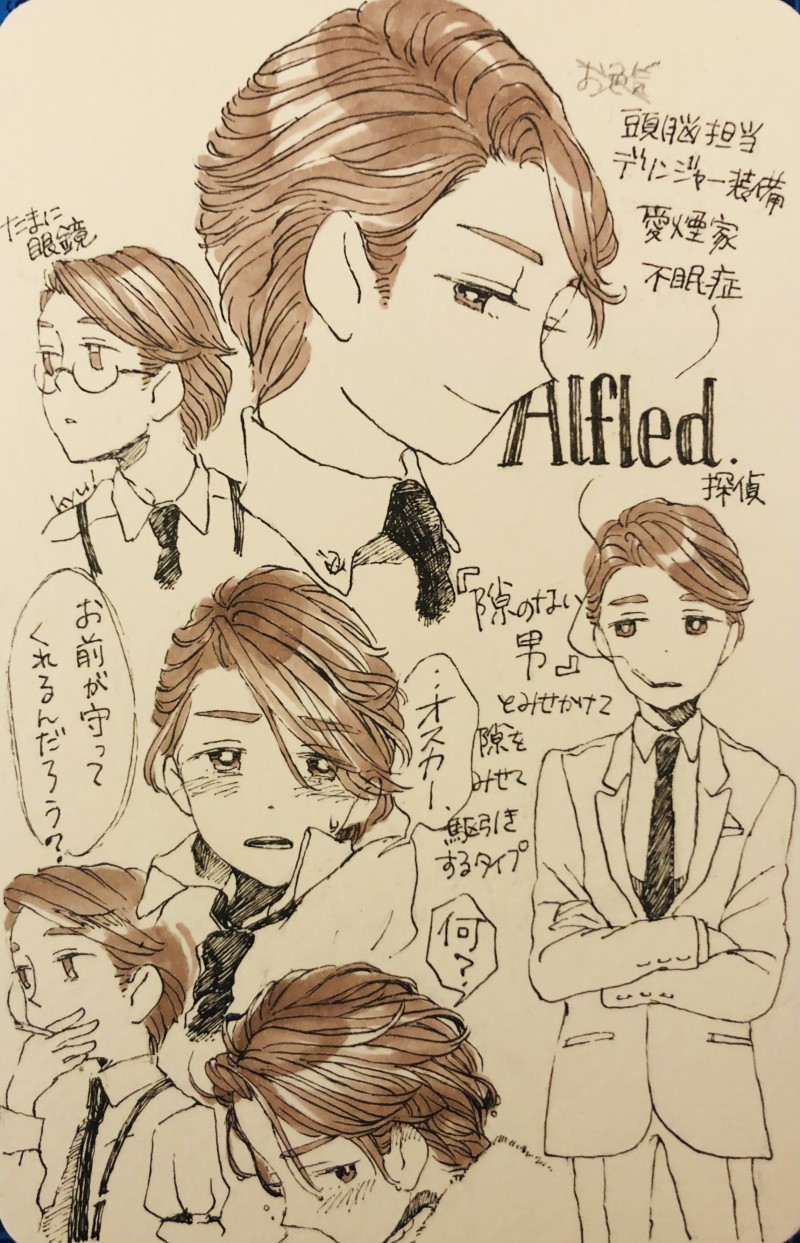 頭脳担当
デリンジャー装備
愛煙家
不眠症
たまに
眼鏡
Alfled.
探偵
『隙のない
男』
とみせかけて
隙を
みせて
駆引き
するタイプ
お前が守って
くれるんだろう?
‥オスカー、
何?